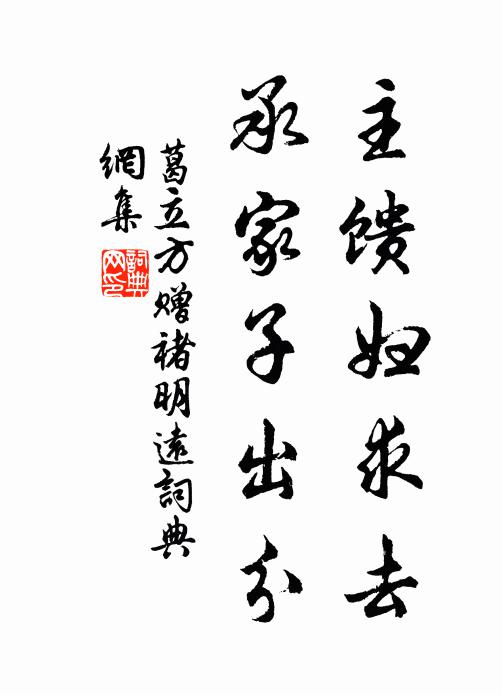 主馈妇求去
承家子出分
葛立方赠褚明遠詞典
網集
詞典
网印